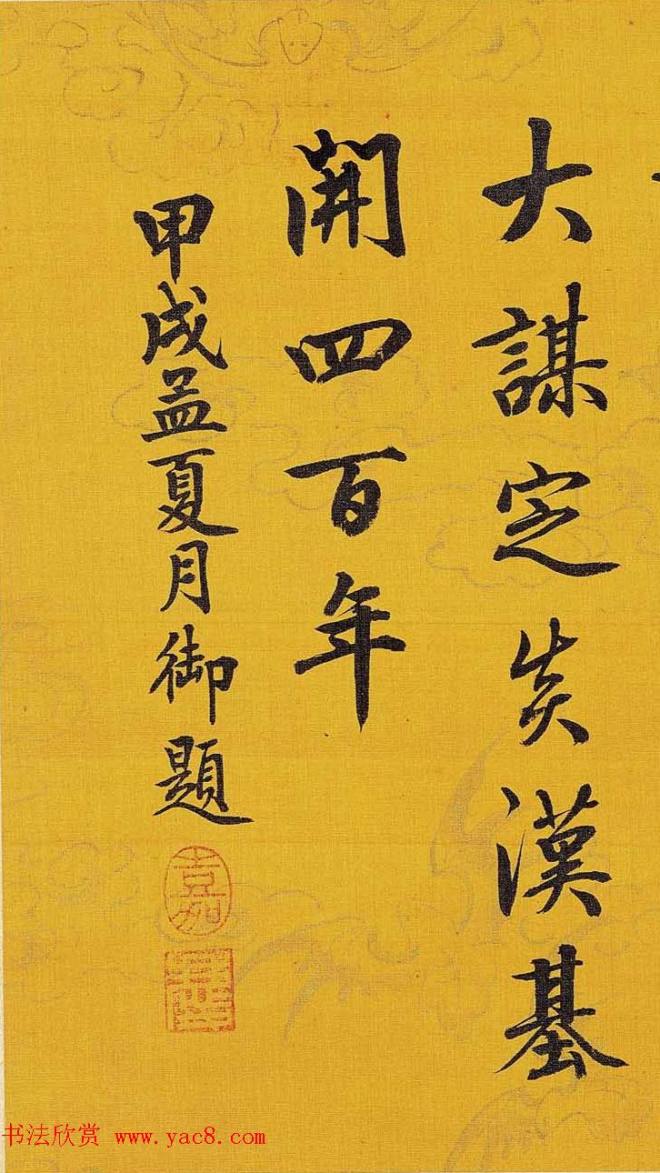 大謀定炎漢基
開四百年
甲戌孟夏月御題
嘉
书法欣赏 www.yac8.com